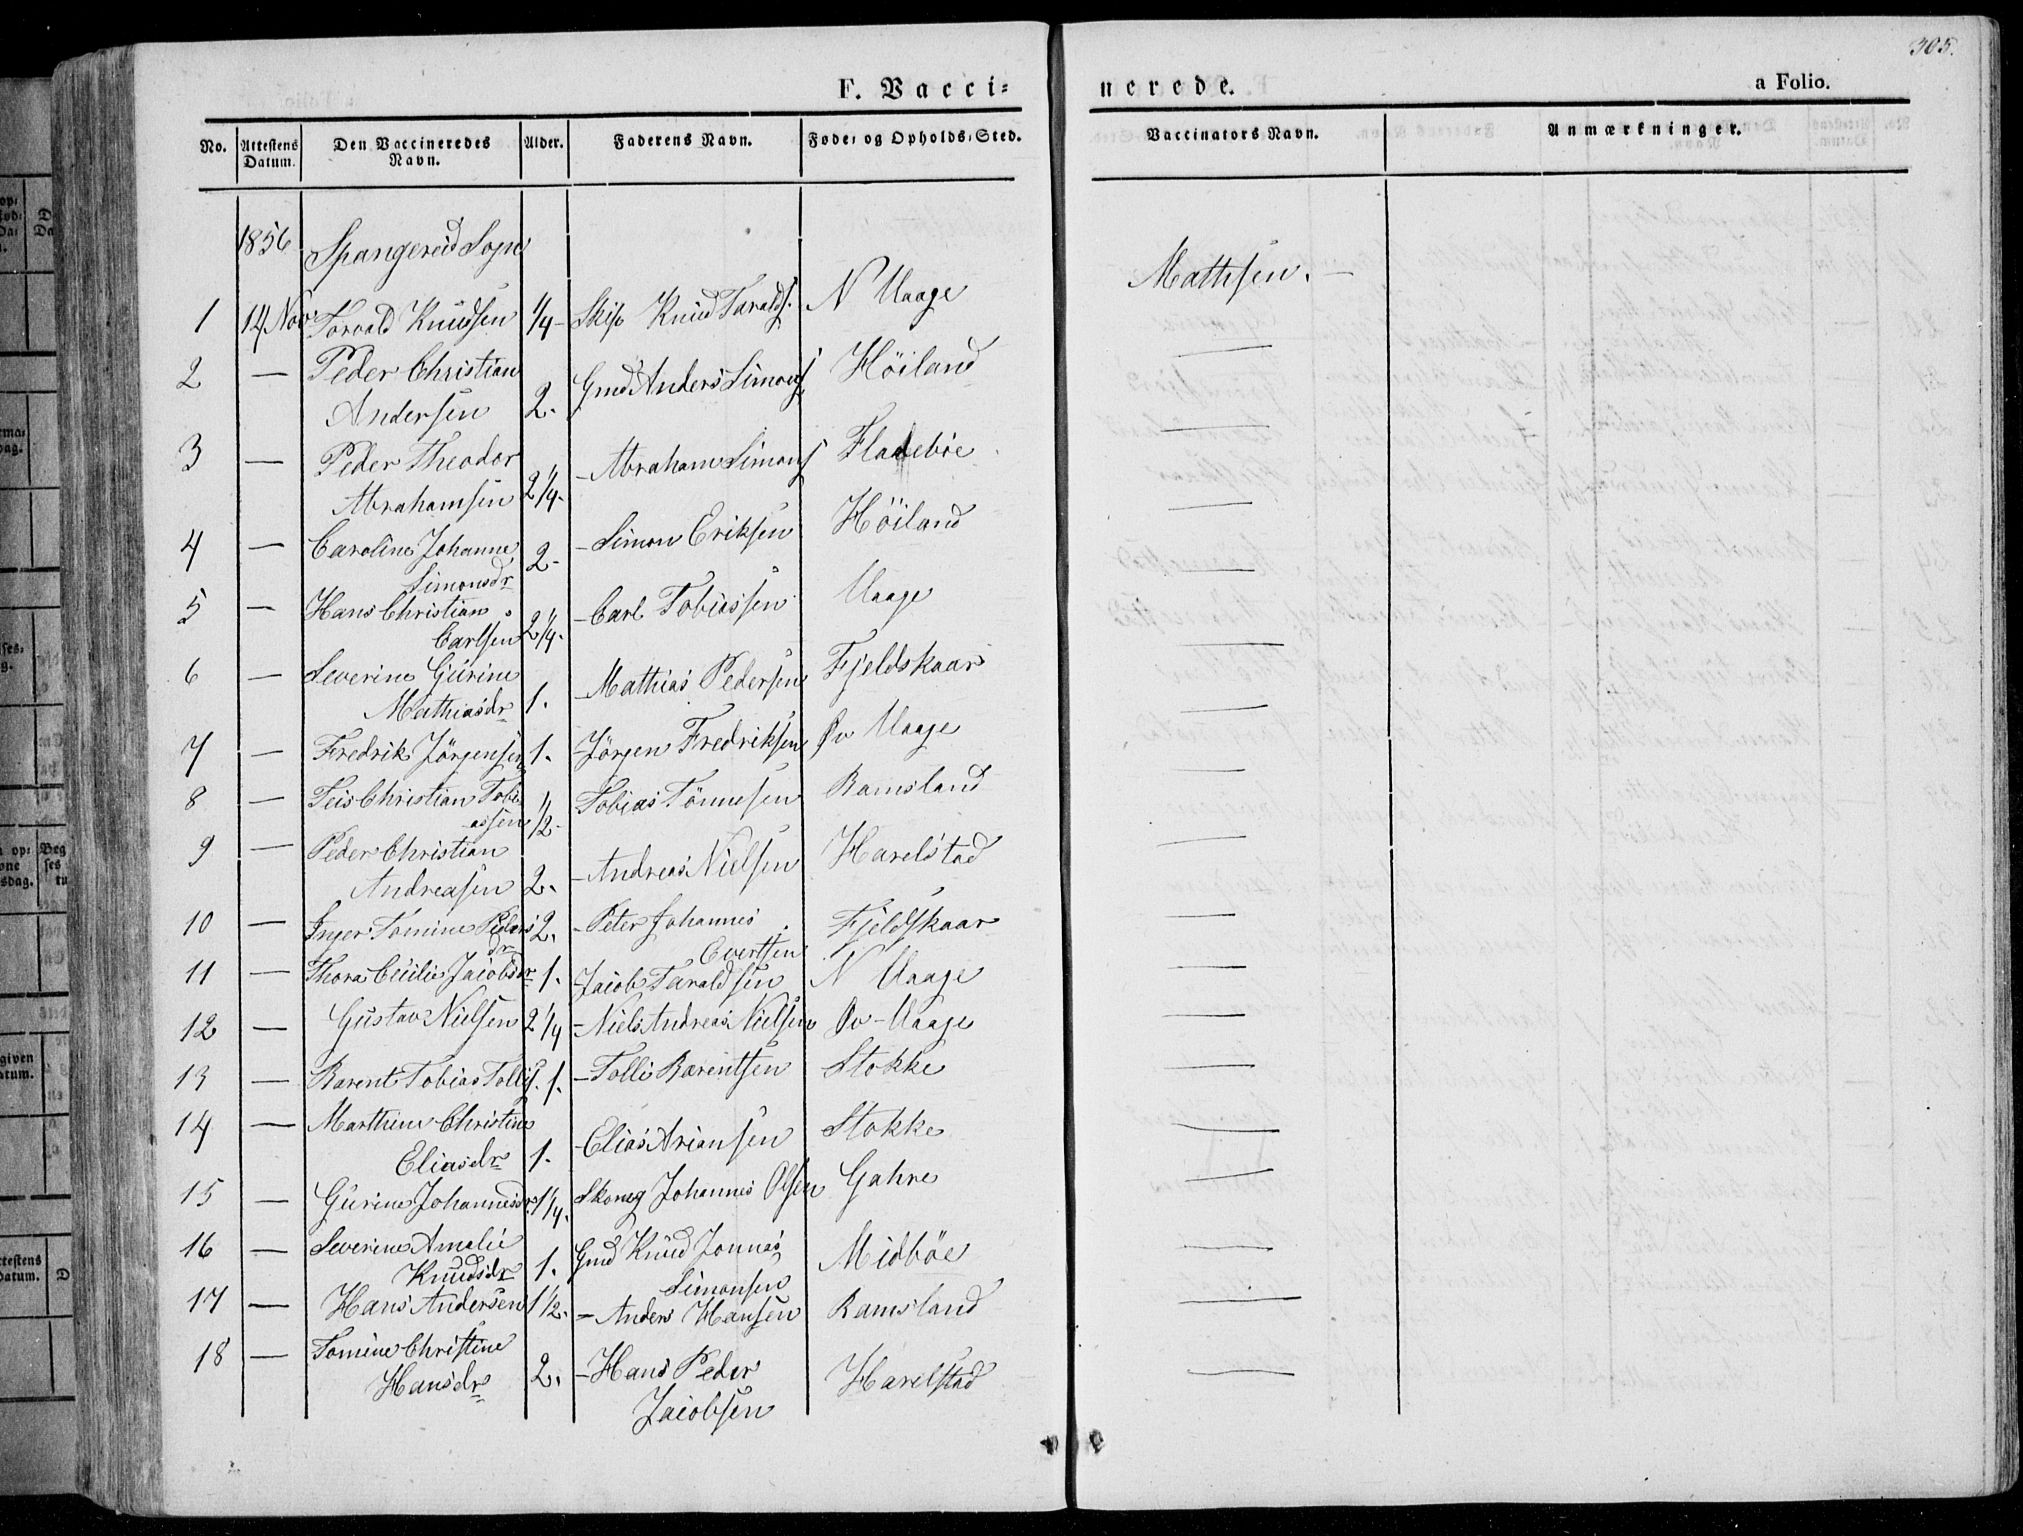 305.
F. Vacci=
nerede.
a Folio.
No.
Attestens Datum.
Den Vaccineredes Navn.
Alder.
Faderens Navn.
Føde= og Opholds=Sted.
Vaccinators Navn.
Anmærkninger.
1856 Spangereid Sogn
Mathisen. —
1 14 Nov Torvald Knudsen 1/4 - Skip Knud Taralds. N Uaage
2 — Peder Christian Andersen 2. Gmd Anders Simons Höiland —
3 — Peder Theodor Abrahamsen 2 1/4 - — Abraham Simons Fladebøe —
4 — Caroline Johanne Simonsdr 2 - — Simon Eriksen Höiland —
5 — Hans Christian Carlsen 2 1/4 - — Carl Tobiassen Uaage —
6 — Severine Gurine Mathiasdr 1. — Mathias Pedersen Fjeldskaar —
7 — Fredrik Jörgensen 1. — Jörgen Fredriksen Øv Uaage —
8 — Teis Christian Tobiassen 1/2 - Tobias Tönnesen Ramsland —
9 — Peder Christian Andreasen 2. — Andreas Nielsen Harelstad —
10 — Inger Tomine Pedersdr 2. — Peter Johannes Evertsen Fjeldskaar —
11 — Thora Cecilie Jacobsdr 1. — Jacob Taraldsen N Uaage —
12 — Gustav Nielsen 2 1/4 — Niels Andreas Nielsen Øv - Uaage —
13 — Barent Tobias Tollis. 1. — Tolli Barentsen Stokke —
14 — Marthine Christine Eliasdr 1. — Elias Ariansen Stokke —
15 — Gurine Johannesdr 1/4. Johannes Olsen Gahre —
16 — Severine Amalie Knudsdr 1. Gmd Knud Jonnas Simonsen Midbøe —
17 — Hans Andersen 1 1/2. — Anders Hansen Ramsland —
18 — Tomine Christine Hansdr 2. — Hans Peder Jacobsen Harelstad —